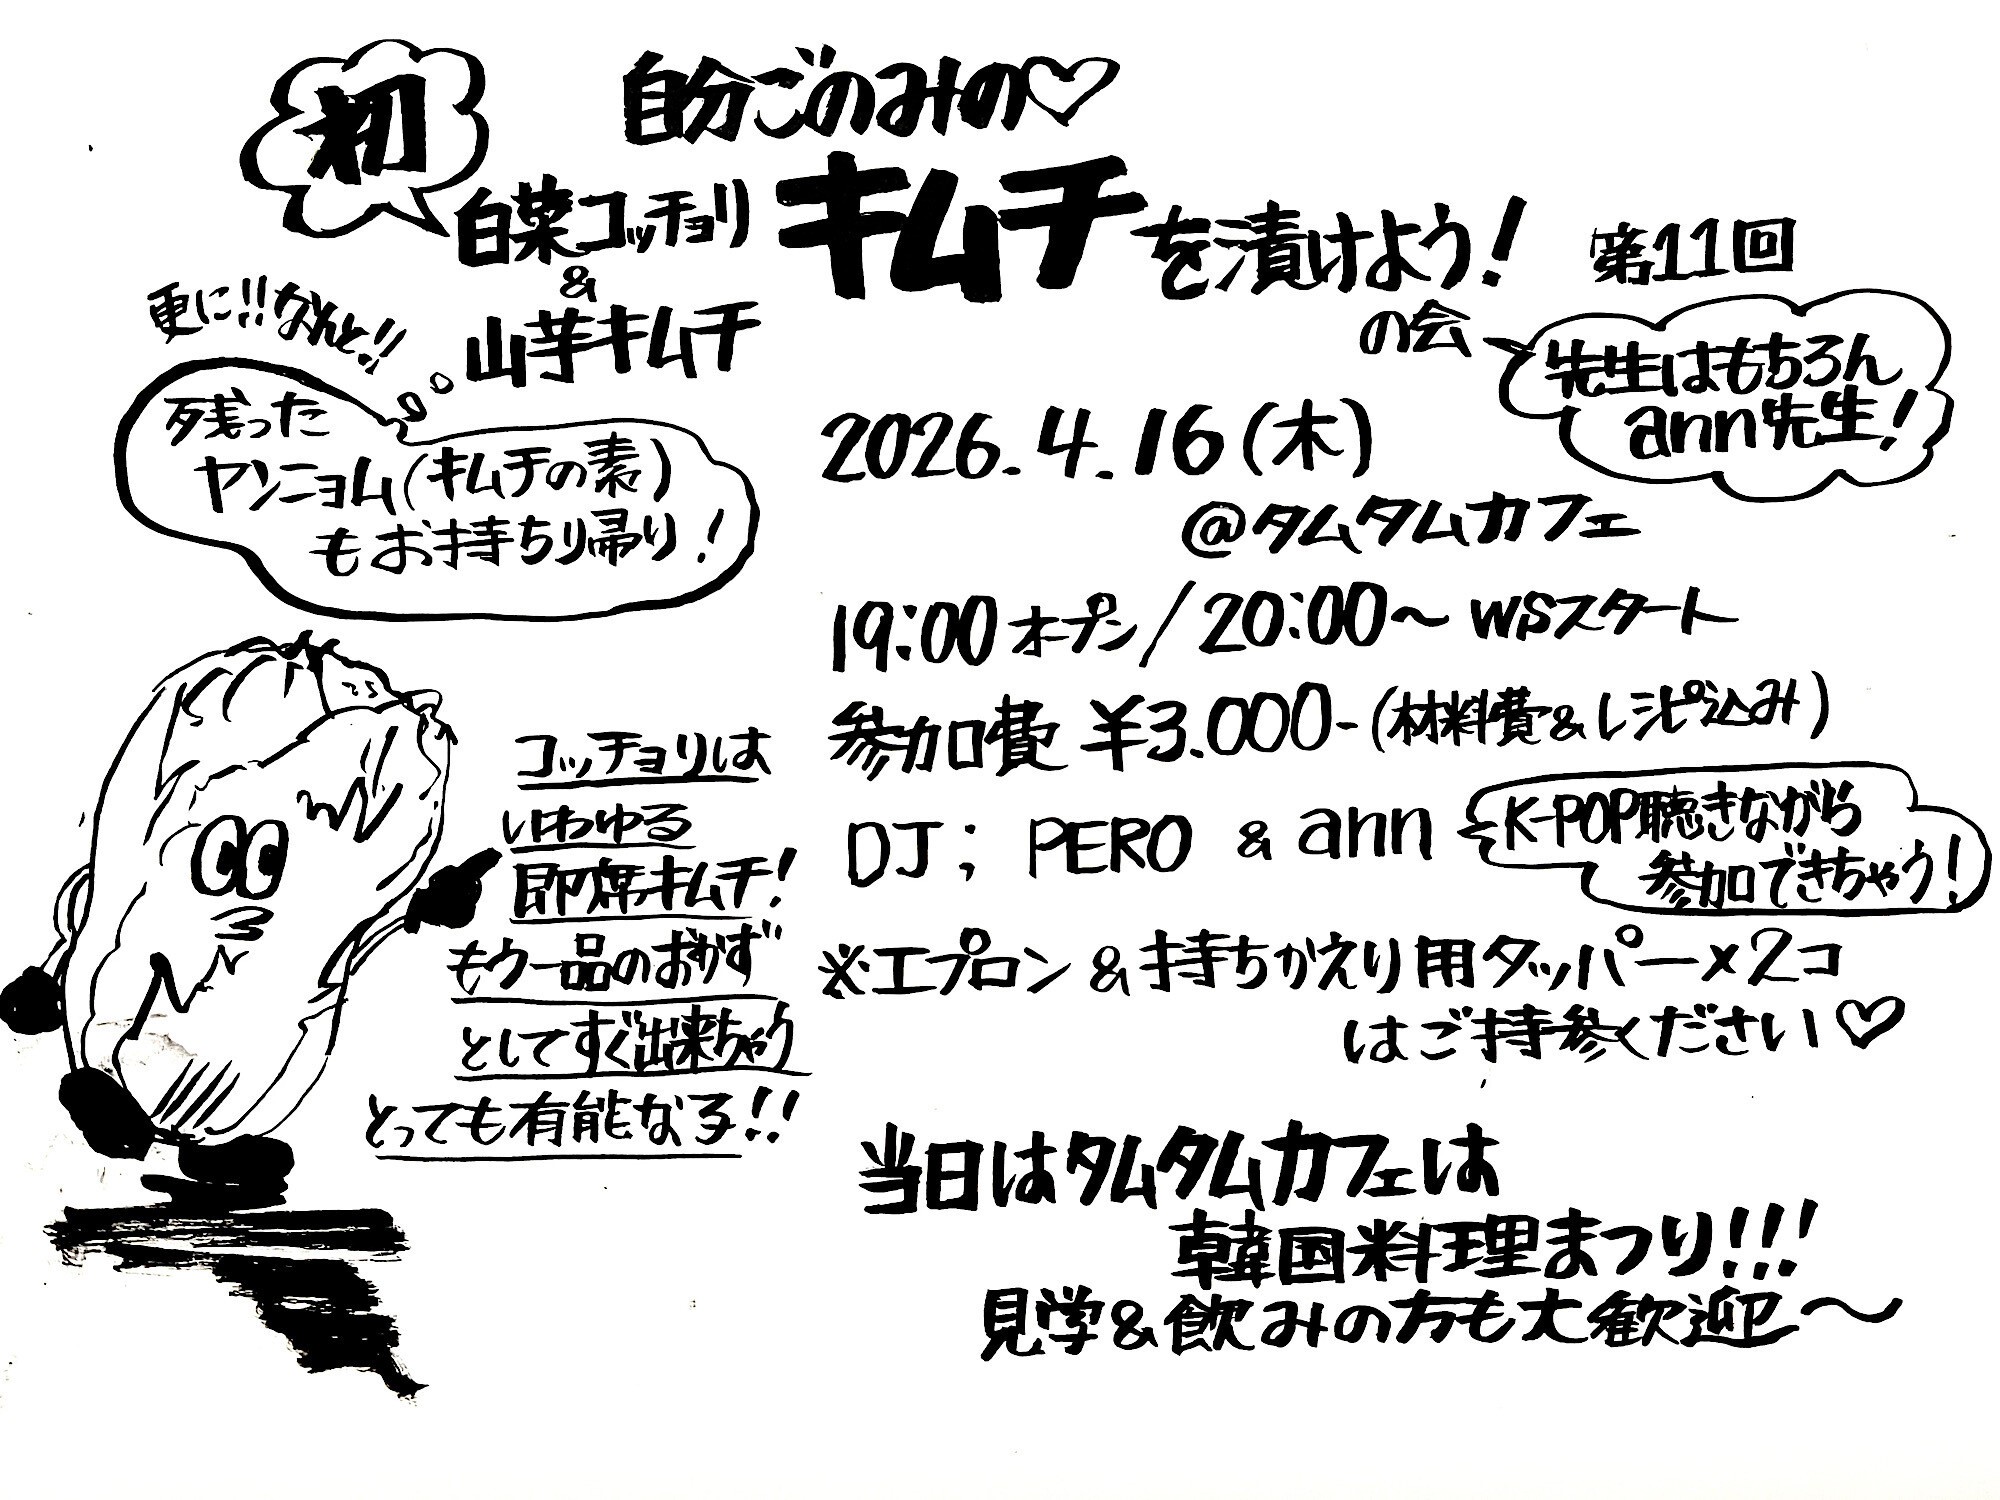 初
自分ごのみの♡
白菜コッチョリ
&
山芋キムチ
キムチを漬けよう!
の会
第11回
先生はもちろん
ann先生!
更に!!なんと!!
残った
ヤンニョム(キムチの素)
もお持ちり帰り!
2026.4.16(木)
@タムタムカフェ
19:00オープン/20:00～WSスタート
参加費 ¥3.000-(材料費&レシピ込み)
DJ; PERO & ann
K-POP聴きながら
参加できちゃう!
※エプロン&持ちかえり用タッパー×2コ
はご持参ください♡
コッチョリは
いわゆる
即席キムチ!
もう一品のおかず
としてすぐ出来ちゃう
とっても有能な子!!
当日はタムタムカフェは
韓国料理まつり!!!
見学&飲みの方も大歓迎～